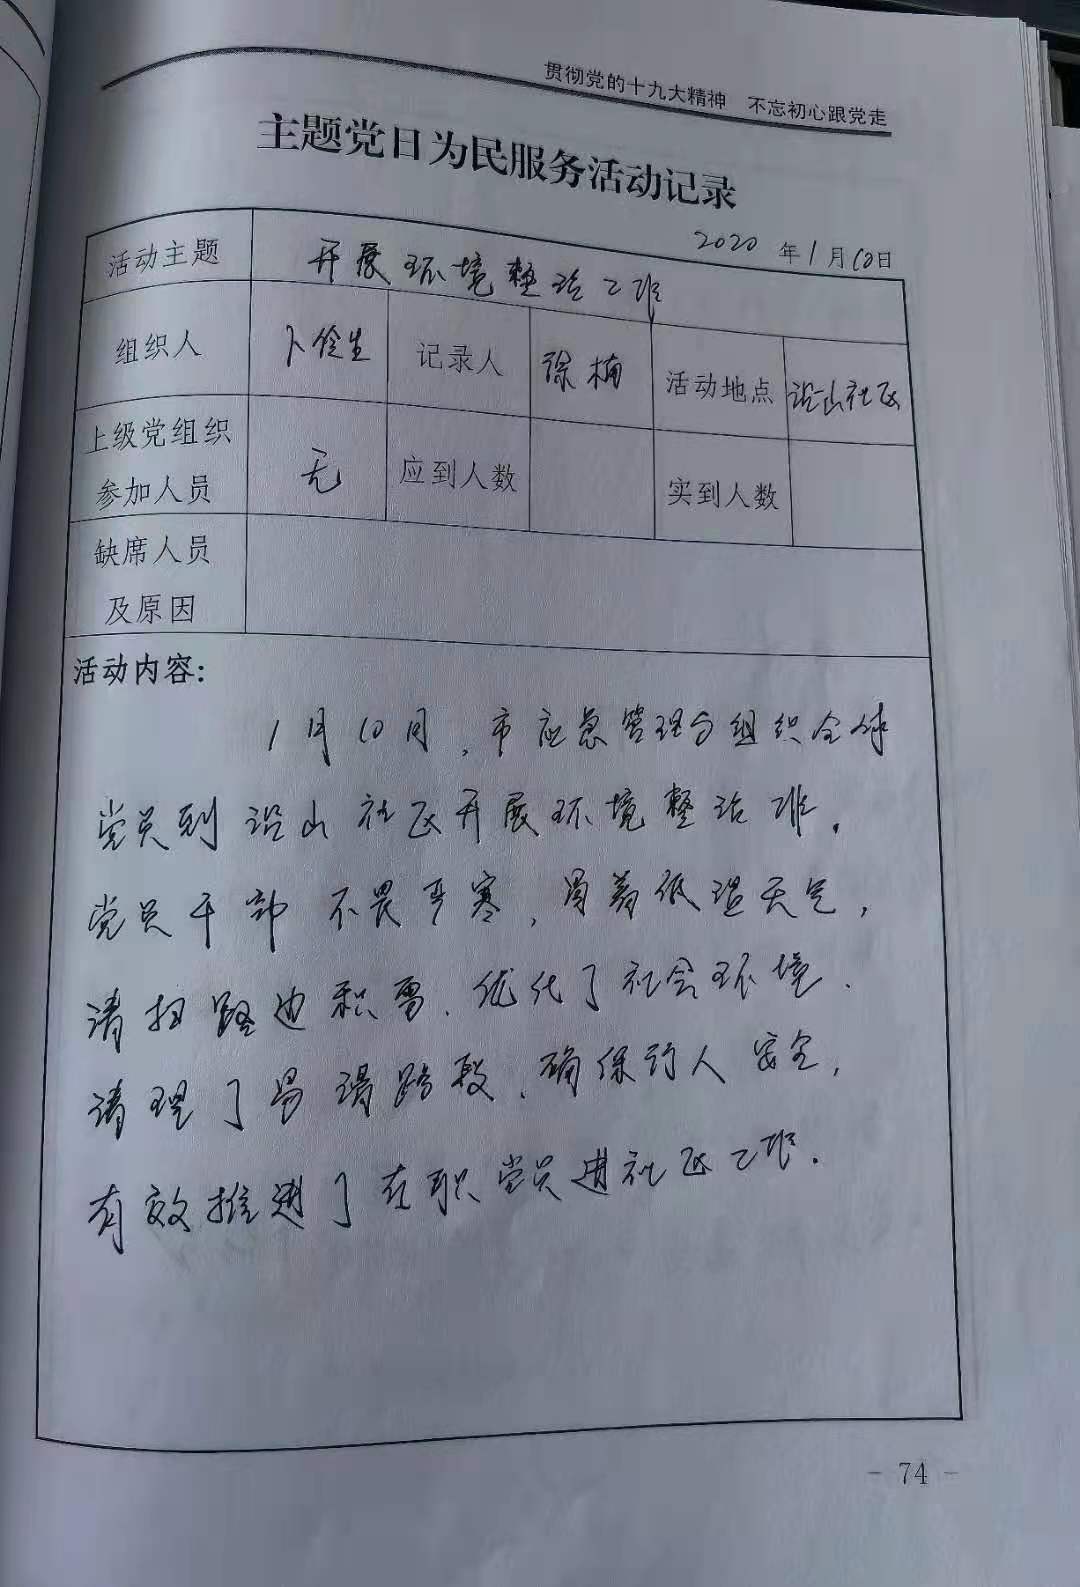 贯彻党的十九大精神 不忘初心跟党走
主题党日为民服务活动记录
2020 年 1 月 10 日
活动主题 开展环境整治工作
组织人 卜俭生 记录人 徐楠 活动地点 沿山社区
上级党组织参加人员 无 应到人数 实到人数
缺席人员及原因
活动内容：
1月10日，市应急管理局组织全体
党员到沿山社区开展环境整治工作。
党员干部不畏严寒，冒着低温天气，
清扫路边积雪、优化了社会环境、
清理了易滑路段、确保行人安全，
有效推进了在职党员进社区工作。
- 74 -